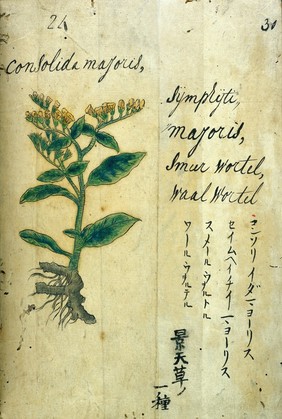 24
31
Consolida majoris,
Symphijti,
majoris,
Smeer wortel,
Waal Wortel
コンソリイダマヨーリス
セイムヘイテイーマヨーリス
スメールウヲルトル
ワールウヲルテル
景天草ノ
一種